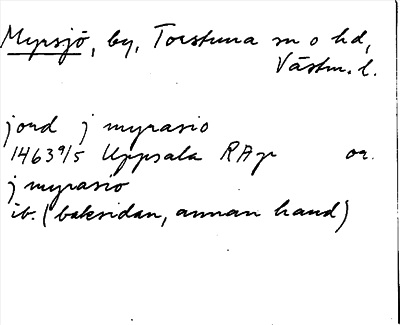 Myrsjö, by, Torstuna sn o hd,
Västm. l.
jord j myrasio
1463 9/5 Uppsala RAp or.
j myrasio
ib. (baksidan, annan hand)